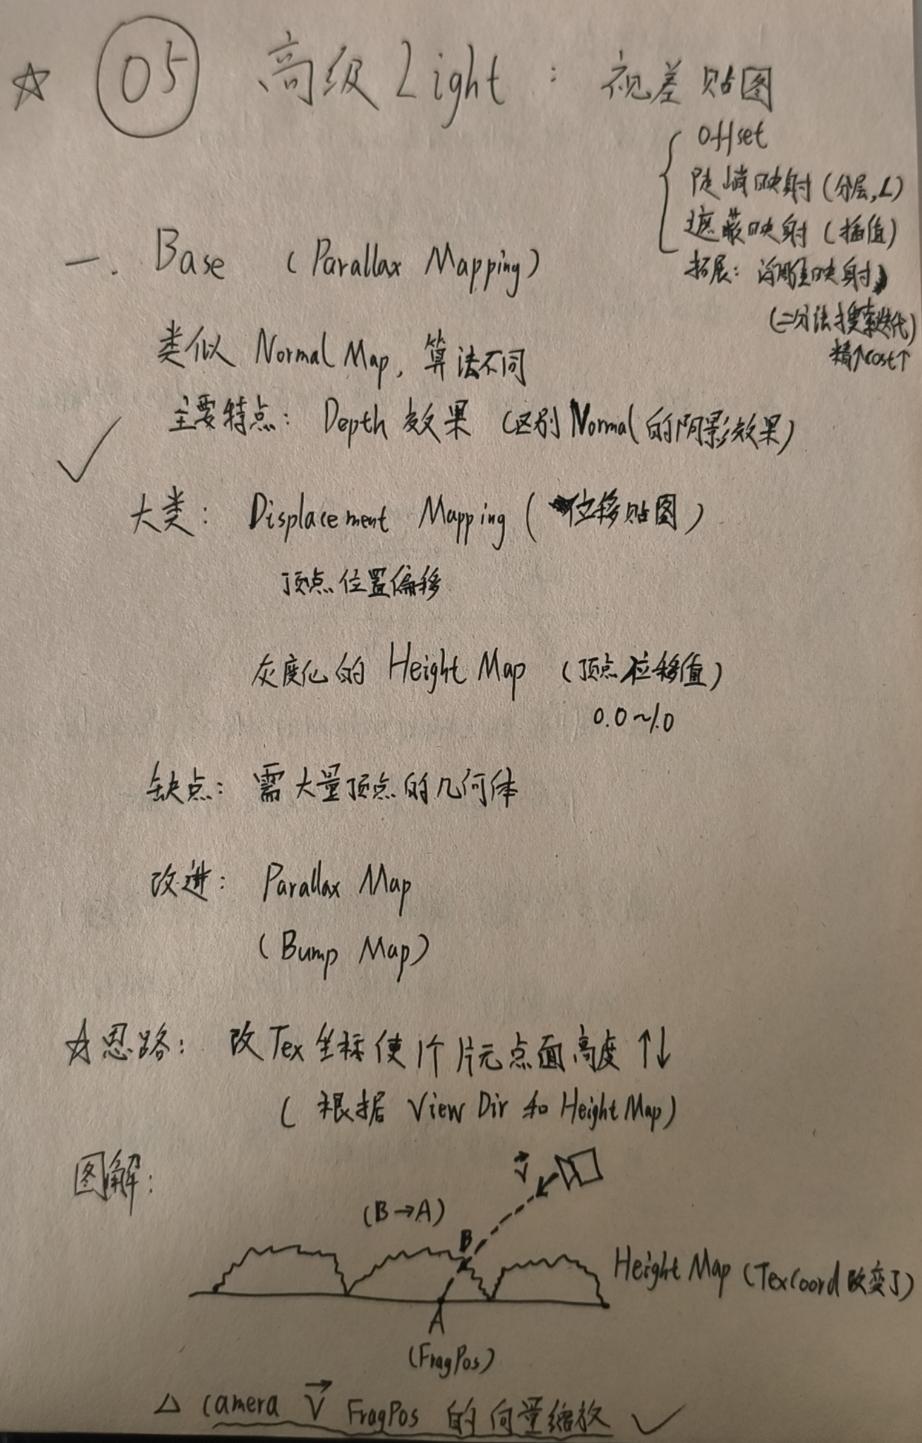 ☆ 05 高级Light : 视差贴图
offset
陡峭映射(分层,L)
遮蔽映射(插值)
拓展: 浮雕映射
(二分法搜索迭代)
精↑cost↑
一. Base (Parallax Mapping)
类似 Normal Map, 算法不同
主要特点: Depth 效果 (区别Normal的阴影效果)
大类: Displacement Mapping (位移贴图)
顶点位置偏移
灰度化的 Height Map (顶点位移值)
0.0~1.0
缺点: 需大量顶点的几何体
改进: Parallax Map
(Bump Map)
☆思路: 改Tex坐标使1个片元点面高度↑↓
(根据 View Dir 和 Height Map)
图解:
V
(B→A)
B
Height Map (TexCoord改变了)
A
(FragPos)
△ camera V FragPos 的向量缩放 ✓